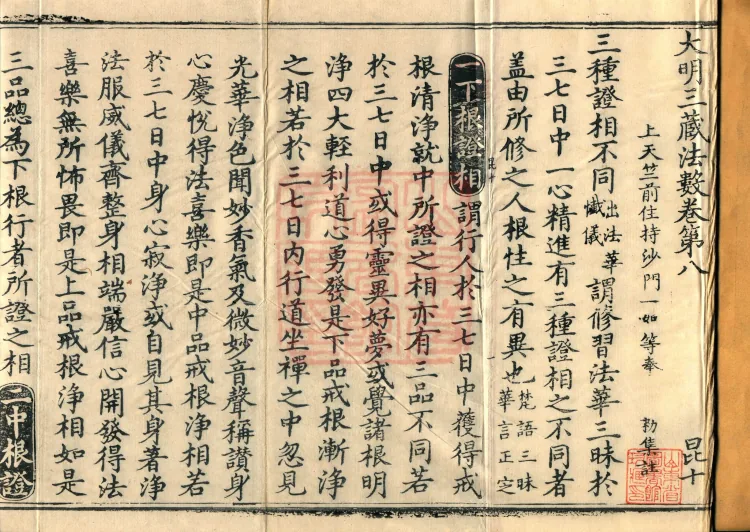 大明三藏法數卷第八 昆十
上天竺前住持沙門一如等奉 勑集註
三種證相不同出法華懺儀謂修習法華三昧於
三七日中一心精進有三種證相之不同者
盖由所修之人根性之有異也梵語三昧華言正定
一下根證相謂行人於三七日中獲得戒
根清淨就中所證之相亦有三品不同若
於三七日中或得靈異好夢或覺諸根明
淨四大輕利道心勇發是下品戒根漸淨
之相若於三七日內行道坐禪之中忽見
光華淨色聞妙香氣及微妙音聲稱讃身
心慶悅得法喜樂即是中品戒根淨相若
於三七日中身心寂淨或自見其身著淨
法服威儀齊整身相端嚴信心開發得法
喜樂無所怖畏即是上品戒根淨相如是
三品總為下根行者所證之相二中根證